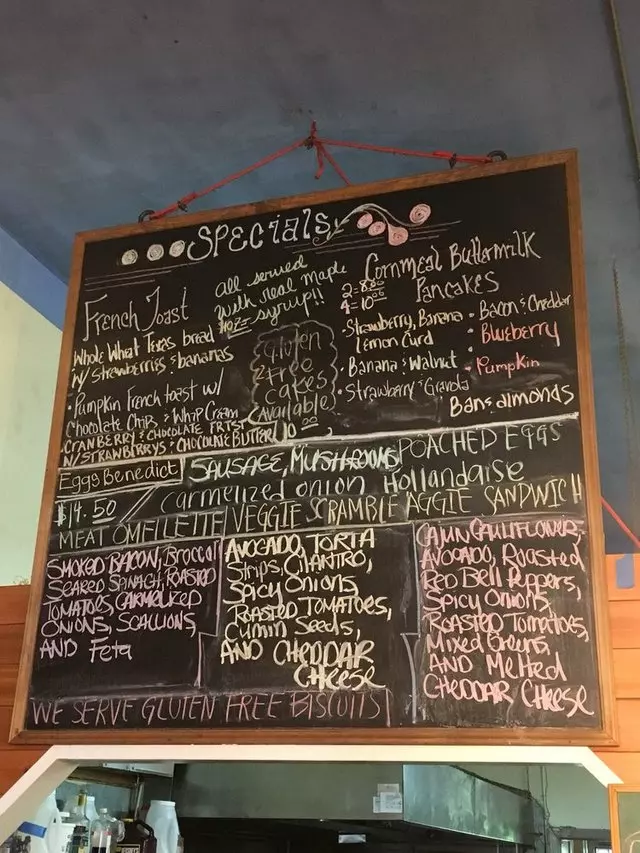 Specials
French Toast
Whole What Texas bread
w/ strawberries & bananas
• Pumpkin French toast w/
Chocolate Chips & Whip Cream
• CRANBERRY & CHOCOLATE FRTST
W/ STRAWBERRYS & CHOCOLATE BUTTER
All served
with real made
syrup!!
Gluten
Free
Cakes
(Available)
10.00
Cornmeal Buttermilk
Pancakes
2=8.00
4=10.00
• Strawberry, Banana
Lemon Curd
• Banana & Walnut
• Strawberry Granola
• Bacon & Cheddar
• Blueberry
• Pumpkin
Ban & almonds
Eggs Benedict
$14.50
SAUSAGE, MUSHROOMS POACHED EGGS
Carmelized onion Hollandaise
MEAT OMELLETTE
SMOKED BACON, BROCCOLI
SEARED SPINACH, ROASTED
TOMATOES, CARMELIZED
ONIONS, SCALLIONS,
AND Feta
VEGGIE SCRAMBLE
AVOCADO, TORTA
Strips, CILANTRO,
Spicy Onions,
ROASTED TOMATOES,
Cumin Seeds,
AND CHEDDAR
CHEESE
AGGIE SANDWICH
CAJUN CAULIFLOWER,
AVOCADO, Roasted
Red Bell Peppers,
Spicy Onions,
Roasted Tomatoes,
Mixed Greens,
AND Melted
CHEDDAR CHEESE
WE SERVE GLUTEN FREE BISCUITS